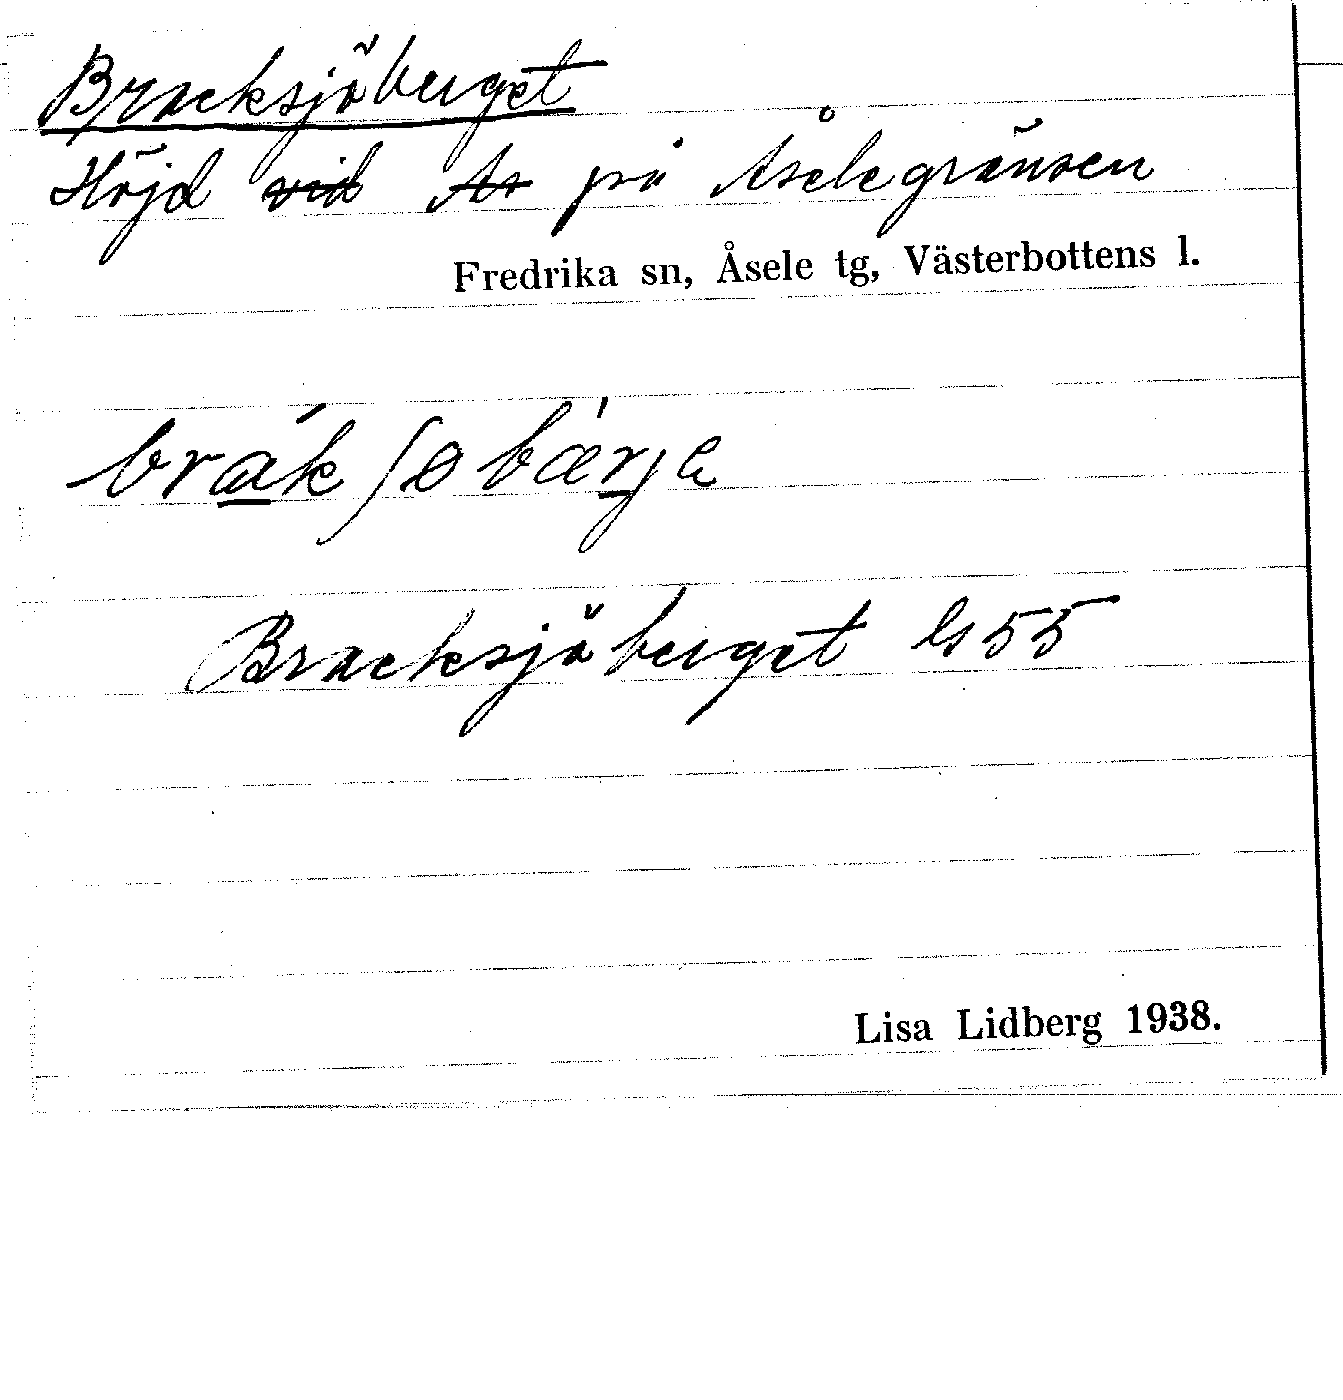 Bracksjöberget
Höjd vid på Åselegränsen
Fredrika sn, Åsele tg, Västerbottens l.
brákʃøbǽrje
Bracksjöberget 55
Lisa Lidberg 1938.